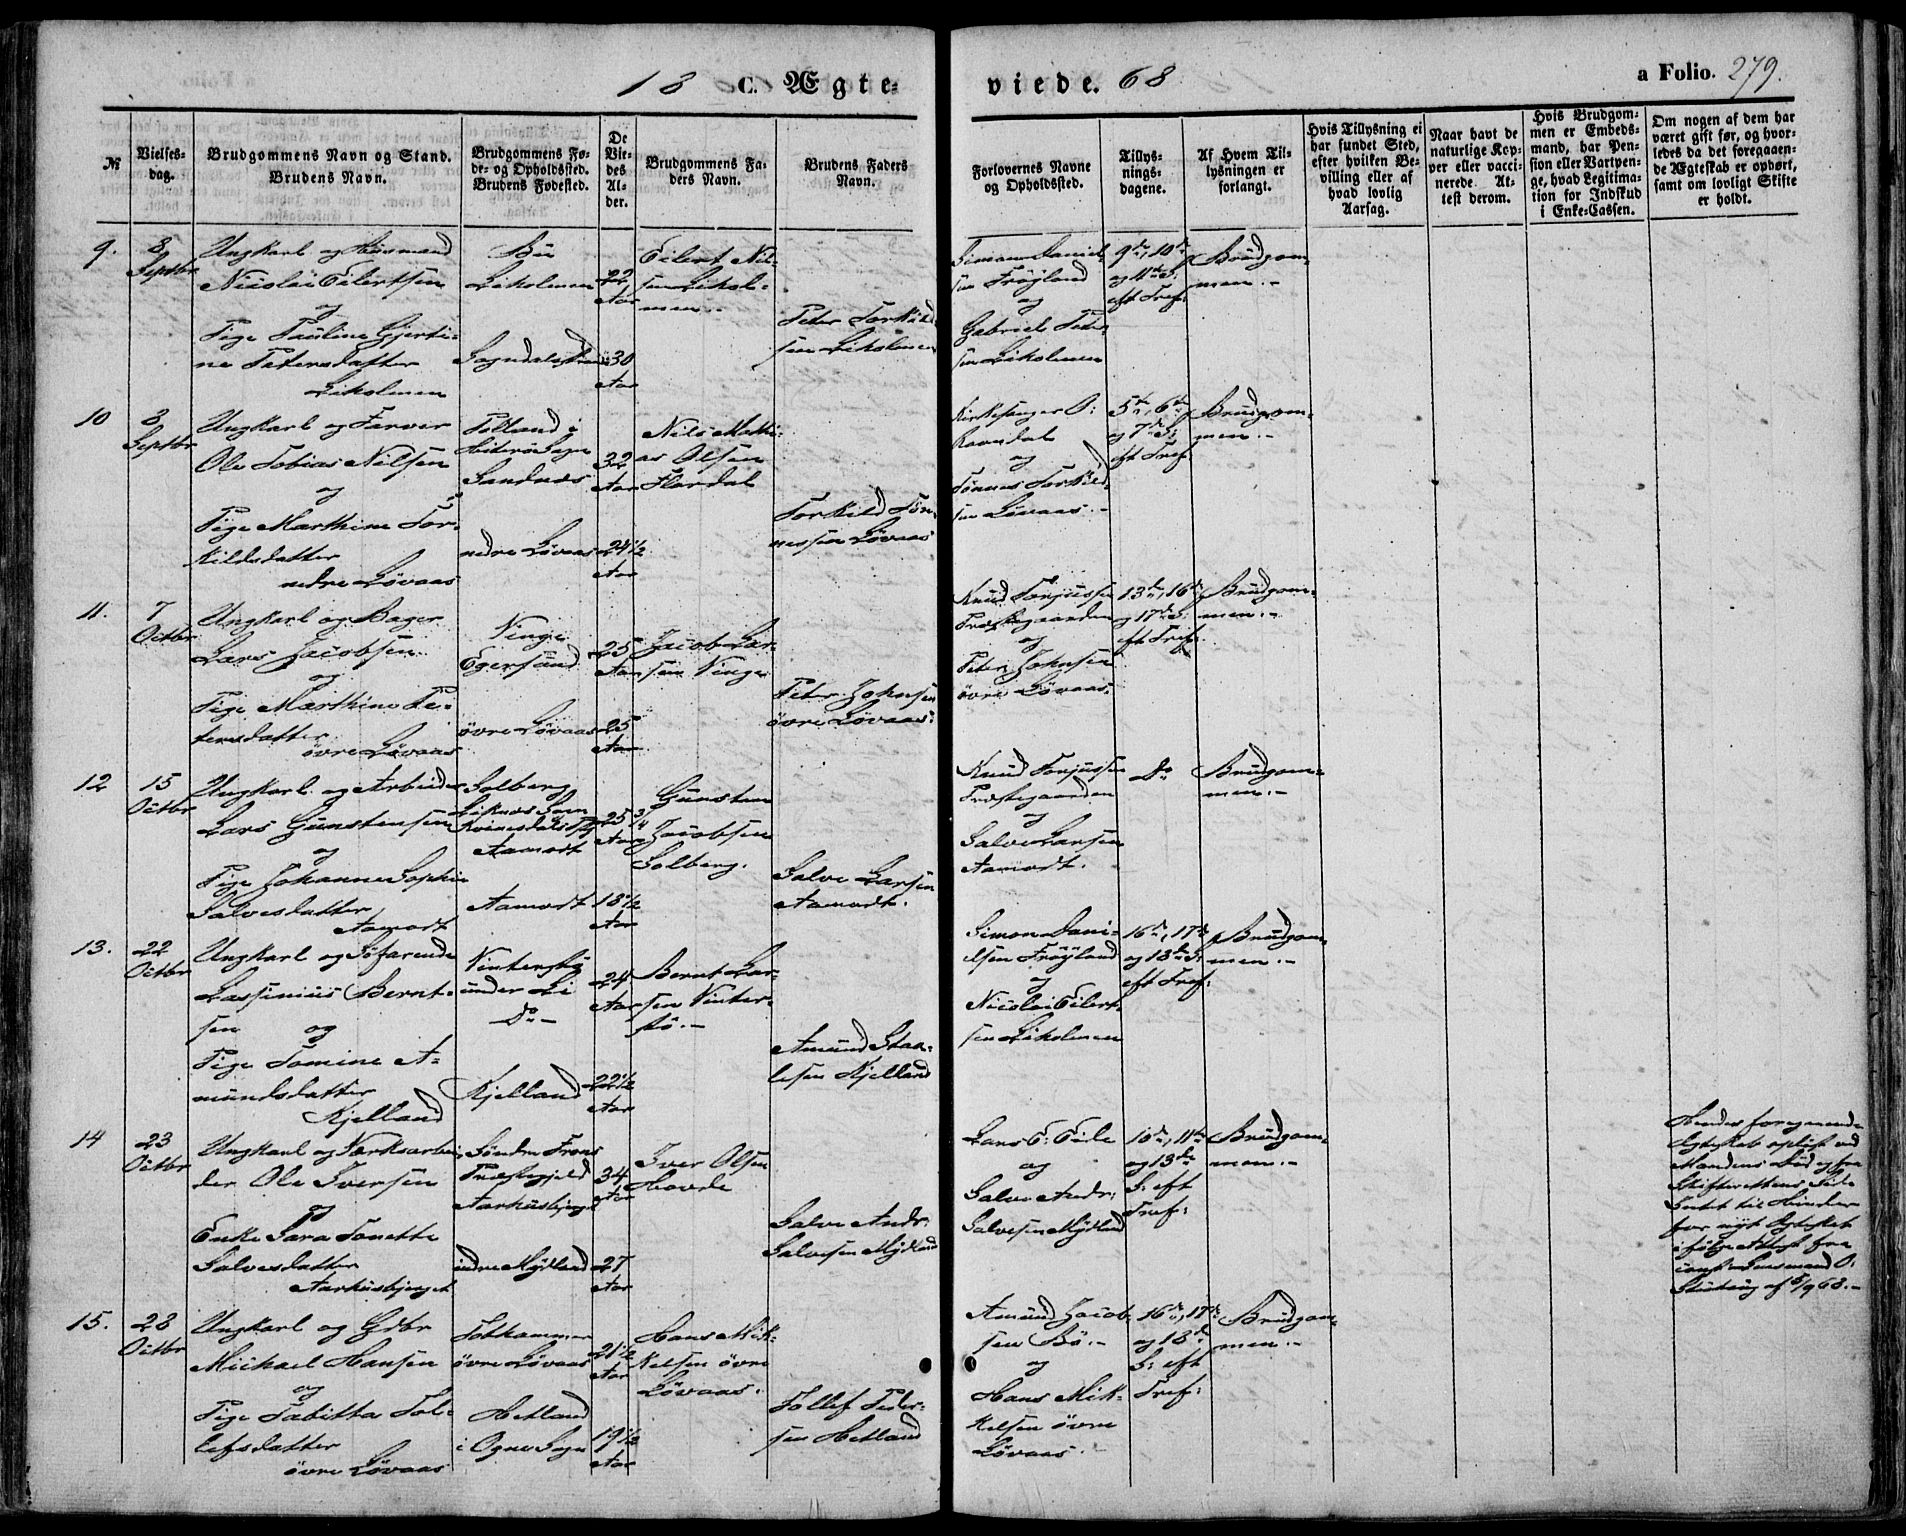 18 C. Ægte-
viede. 68
a Folio. 279.
№
Vielses-
dag.
Brudgommens Navn og Stand.
Brudens Navn.
Brudgommens Fø-
de- og Opholdssted.
Brudens Fødested.
De
Vie-
des
Al-
der.
Brudgommens Fa-
ders Navn.
Brudens Faders
Navn.
Forlovernes Navne
og Opholdssted.
Tillys-
nings-
dagene.
Af Hvem Til-
lysningen er
forlangt.
Hvis Tillysning ei
har fundet Sted,
efter hvilken Be-
villing eller af
hvad lovlig
Aarsag.
Naar havt de
naturlige Kop-
per eller vacci-
nerede. At-
test derom.
Hvis Brudgom-
men er Embeds-
mand, har Pen-
sion eller Vartpen-
ge, hvad Legitima-
tion for Indskud
i Enke-Cassen.
Om nogen af dem har
været gift før, og hvor-
ledes da det foregaaen-
de Ægteskab er ophørt,
samt om lovligt Skifte
er holdt.
9.
8
Septbr
Ungkarl og Husmand
Nicolai Eilertsen
og
Pige Pauline Gjerti-
ne Petersdatter
Liholmen
Bu
Liholmen
Sogndalsstrand
22
Aar
30
Aar
Eilert Nil-
sen Lihol-
men.
Peter Torkild
sen Liholmen
Simon Daniel-
sen Frøyland
og
Gabriel Peter-
sen Liholmen
9de, 10de
og 11te S.
eft Tref.
Brudgom-
men.-
10
8
Septbr
Ungkarl og Farver
Ole Tobias Nilsen
og
Pige Marthine Tor-
kildsdatter
nedre Løvaas
Tolland i
Hiterø Sogn
Sandnæs
nedre Løvaas
32
Aar
24 1/2
Aar
Nils Mathi-
as Olsen
Flordal
Torkild Tøn-
nessen Løvaas
Kirkesanger O:
Ravndal
og
Tønnes Torkild-
sen Løvaas.-
5te, 6te
og 7de S.
eft Tref
Brudgom-
men.-
11.
7
Octbr
Ungkarl og Bager
Lars Jacobsen
og
Pige Marthine Pe-
tersdatter
øvre Løvaas
Vinge
Egersund
øvre Løvaas
25
Aar
25
Aar
Jacob Lar-
sen Vinge
Peter Johnsen
øvre Løvaas.
Knud Torjussen
Præstegaarden
og
Peter Johnsen
øvre Løvaas.
13de, 16de
og 17de S.
eft Tref.
Brudgom-
men.-
12
15
Octbr
Ungkarl og Arbeider
Lars Gunstensen
og
Pige Johanne Sophie
Salvesdatter
Aamodt
Solberg
Liknæs Sogn
Kvinesdals Pgj
Aamodt
Aamodt
25 3/4
Aar
18 1/2
Aar
Gunsten
Jacobsen
Solberg.
Salve Larsen
Aamodt.
Knud Torjussen
Præstegaarden
og
Salve Larsen
Aamodt.
Do
Brudgom-
men.-
13.
22
Octbr
Ungkarl og Søfarende
Lassenius Bernt-
sen og
Pige Tomine A-
mundsdatter
Kjelland
Vinterstø
under Li
-Do-
Kjelland
24
Aar
22 1/2
Aar
Bernt Lar-
sen Vinter-
stø.-
Amund Staa-
lesen Kjelland
Simon Dani-
elsen Frøyland
og
Nicolai Eilert-
sen Liholmen
16de, 17de
og 18de S.
eft Tref:
Brudgom-
men.-
14
23
Octbr
Ungkarl og Værksarbei-
der Ole Iversen
og
Enke Sara Tonette
Salvesdatter
Aarhusbjerget
Søndre Frons
Præstegjeld
Aarhusbjerget
indre Mydland
34
Aar
27
Aar
Iver Olsen
Hovde
Salve Andr:
Salvesen Mydland
Lars E. Eide
og
Salve Andr:
Salvesen Mydland
10de, 11te
og 13de
S: eft
Tref:
Brudgom-
men.-
Hendes foregaaende
Ægteskab opløst ved
Mandens Død og fra
Skifterettens Side
Intet til Hinder
for nyt Ægteskab
ifølge Attest fra
const. Lensmand O.
af 5/9 68.-
15.
28
Octbr
Ungkarl og Gdbr
Michael Hansen
og
Pige Tabitta Tol-
lefsdatter
øvre Løvaas
Tothammer
øvre Løvaas
Hetland
i Ogne Sogn
21 1/2
Aar
19 1/2
Aar
Hans Mik-
kelsen øvre
Løvaas.
Tollef Peder-
sen Hetland
Amund Jacob-
sen Bø.-
og
Hans Mik-
kelsen øvre
Løvaas.-
16de, 17de
og 18de
S: eft
Tref:
Brudgom-
men.-